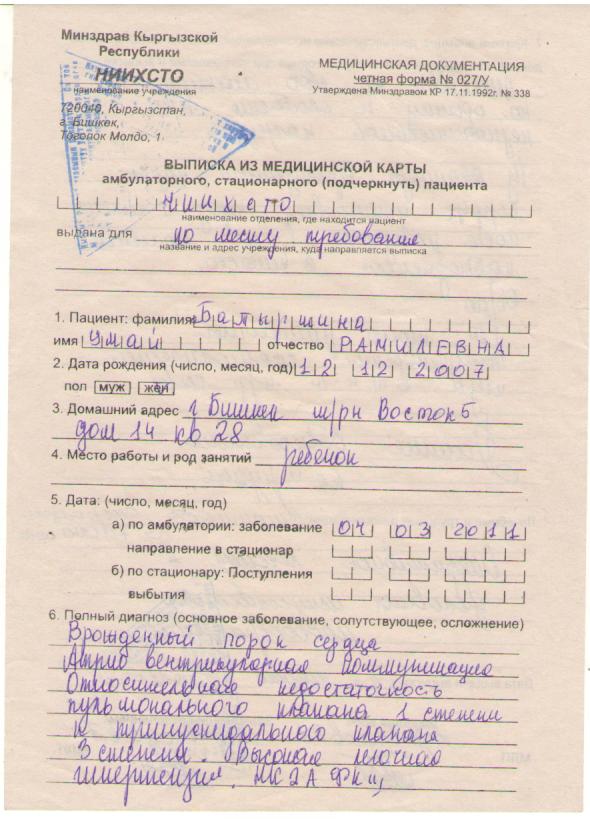 Минздрав Кыргызской
Республики
НИИХСТО
наименование учреждения
720040, Кыргызстан,
г. Бишкек,
Тоголок Молдо, 1
МЕДИЦИНСКАЯ ДОКУМЕНТАЦИЯ
четная форма № 027/У
Утверждена Минздравом КР 17.11.1992г. № 338
ВЫПИСКА ИЗ МЕДИЦИНСКОЙ КАРТЫ
амбулаторного, стационарного (подчеркнуть) пациента
Ниихсто
наименование отделения, где находится пациент
выдана для по месту требования
название и адрес учреждения, куда направляется выписка
1. Пациент: фамилия
имя Умай отчество РАМИЛЕВНА
2. Дата рождения (число, месяц, год) 12 12 2007
пол муж жен
3. Домашний адрес г Бишкек м/рн Восток 5
дом 14 кв 28
4. Место работы и род занятий ребенок
5. Дата: (число, месяц, год)
а) по амбулатории: заболевание 04 03 2011
направление в стационар
б) по стационару: Поступления
выбытия
6. Полный диагноз (основное заболевание, сопутствующее, осложнение)
Врожденный порок сердца
Атрио вентрикулярная коммуникация
Относительная недостаточность
пульмонального клапана 1 степени
и трикуспидального клапана
3 степени. Высокая легочная
гипертензия. НК 2А ФК II,